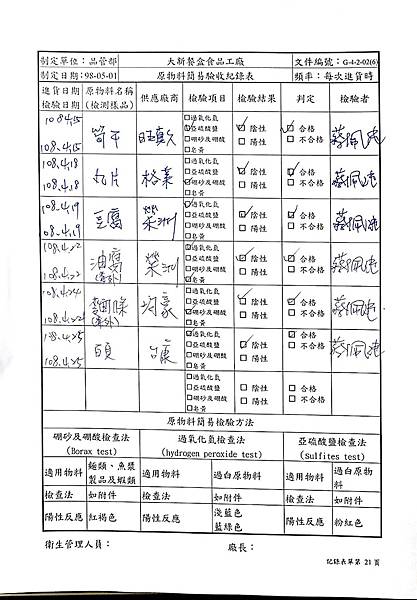 制定單位：品管部 大新餐盒食品工廠 文件編號：G-4-2-02(6)
制定日期：98-05-01 原物料簡易驗收紀錄表 頻率：每次進貨時
進貨日期 原物料名稱 供應廠商 檢驗項目 檢驗結果 判定 檢驗者
檢驗日期 (檢測樣品)
□過氧化氫
108.4.15 筍干 □亞硫酸鹽 ☑陰性 ☑合格
108.4.15 □硼砂及硼酸 □陽性 □不合格
□皂黃
□過氧化氫
108.4.18 □亞硫酸鹽 ☑陰性 ☑合格
108.4.18 ☑硼砂及硼酸 □陽性 □不合格
□皂黃
☑過氧化氫
108.4.19 豆腐 榮洲 □亞硫酸鹽 ☑陰性 ☑合格
108.4.19 □硼砂及硼酸 □陽性 □不合格
□皂黃
☑過氧化氫
108.4.22 油腐 榮洲 □亞硫酸鹽 ☑陰性 ☑合格
108.4.22 □硼砂及硼酸 □陽性 □不合格
□皂黃
□過氧化氫
108.4.24 □亞硫酸鹽 ☑陰性 ☑合格
108.4.22 ☑硼砂及硼酸 □陽性 □不合格
□皂黃
□過氧化氫
108.4.25 □亞硫酸鹽 ☑陰性 ☑合格
108.4.25 □硼砂及硼酸 □陽性 □不合格
□皂黃
□過氧化氫
□亞硫酸鹽 □陰性 □合格
□硼砂及硼酸 □陽性 □不合格
□皂黃
原物料簡易檢驗方法
硼砂及硼酸檢查法 過氧化氫檢查法 亞硫酸鹽檢查法
(Borax test) (hydrogen peroxide test) (Sulfites test)
適用物料 麵類、魚漿製品及蝦類 適用物料 過白原物料 適用物料 過白原物料
檢查法 如附件 檢查法 如附件 檢查法 如附件
陽性反應 紅褐色 陽性反應 淺藍色 藍綠色 陽性反應 粉紅色
衛生管理人員： 廠長：
記錄表單第 21 頁